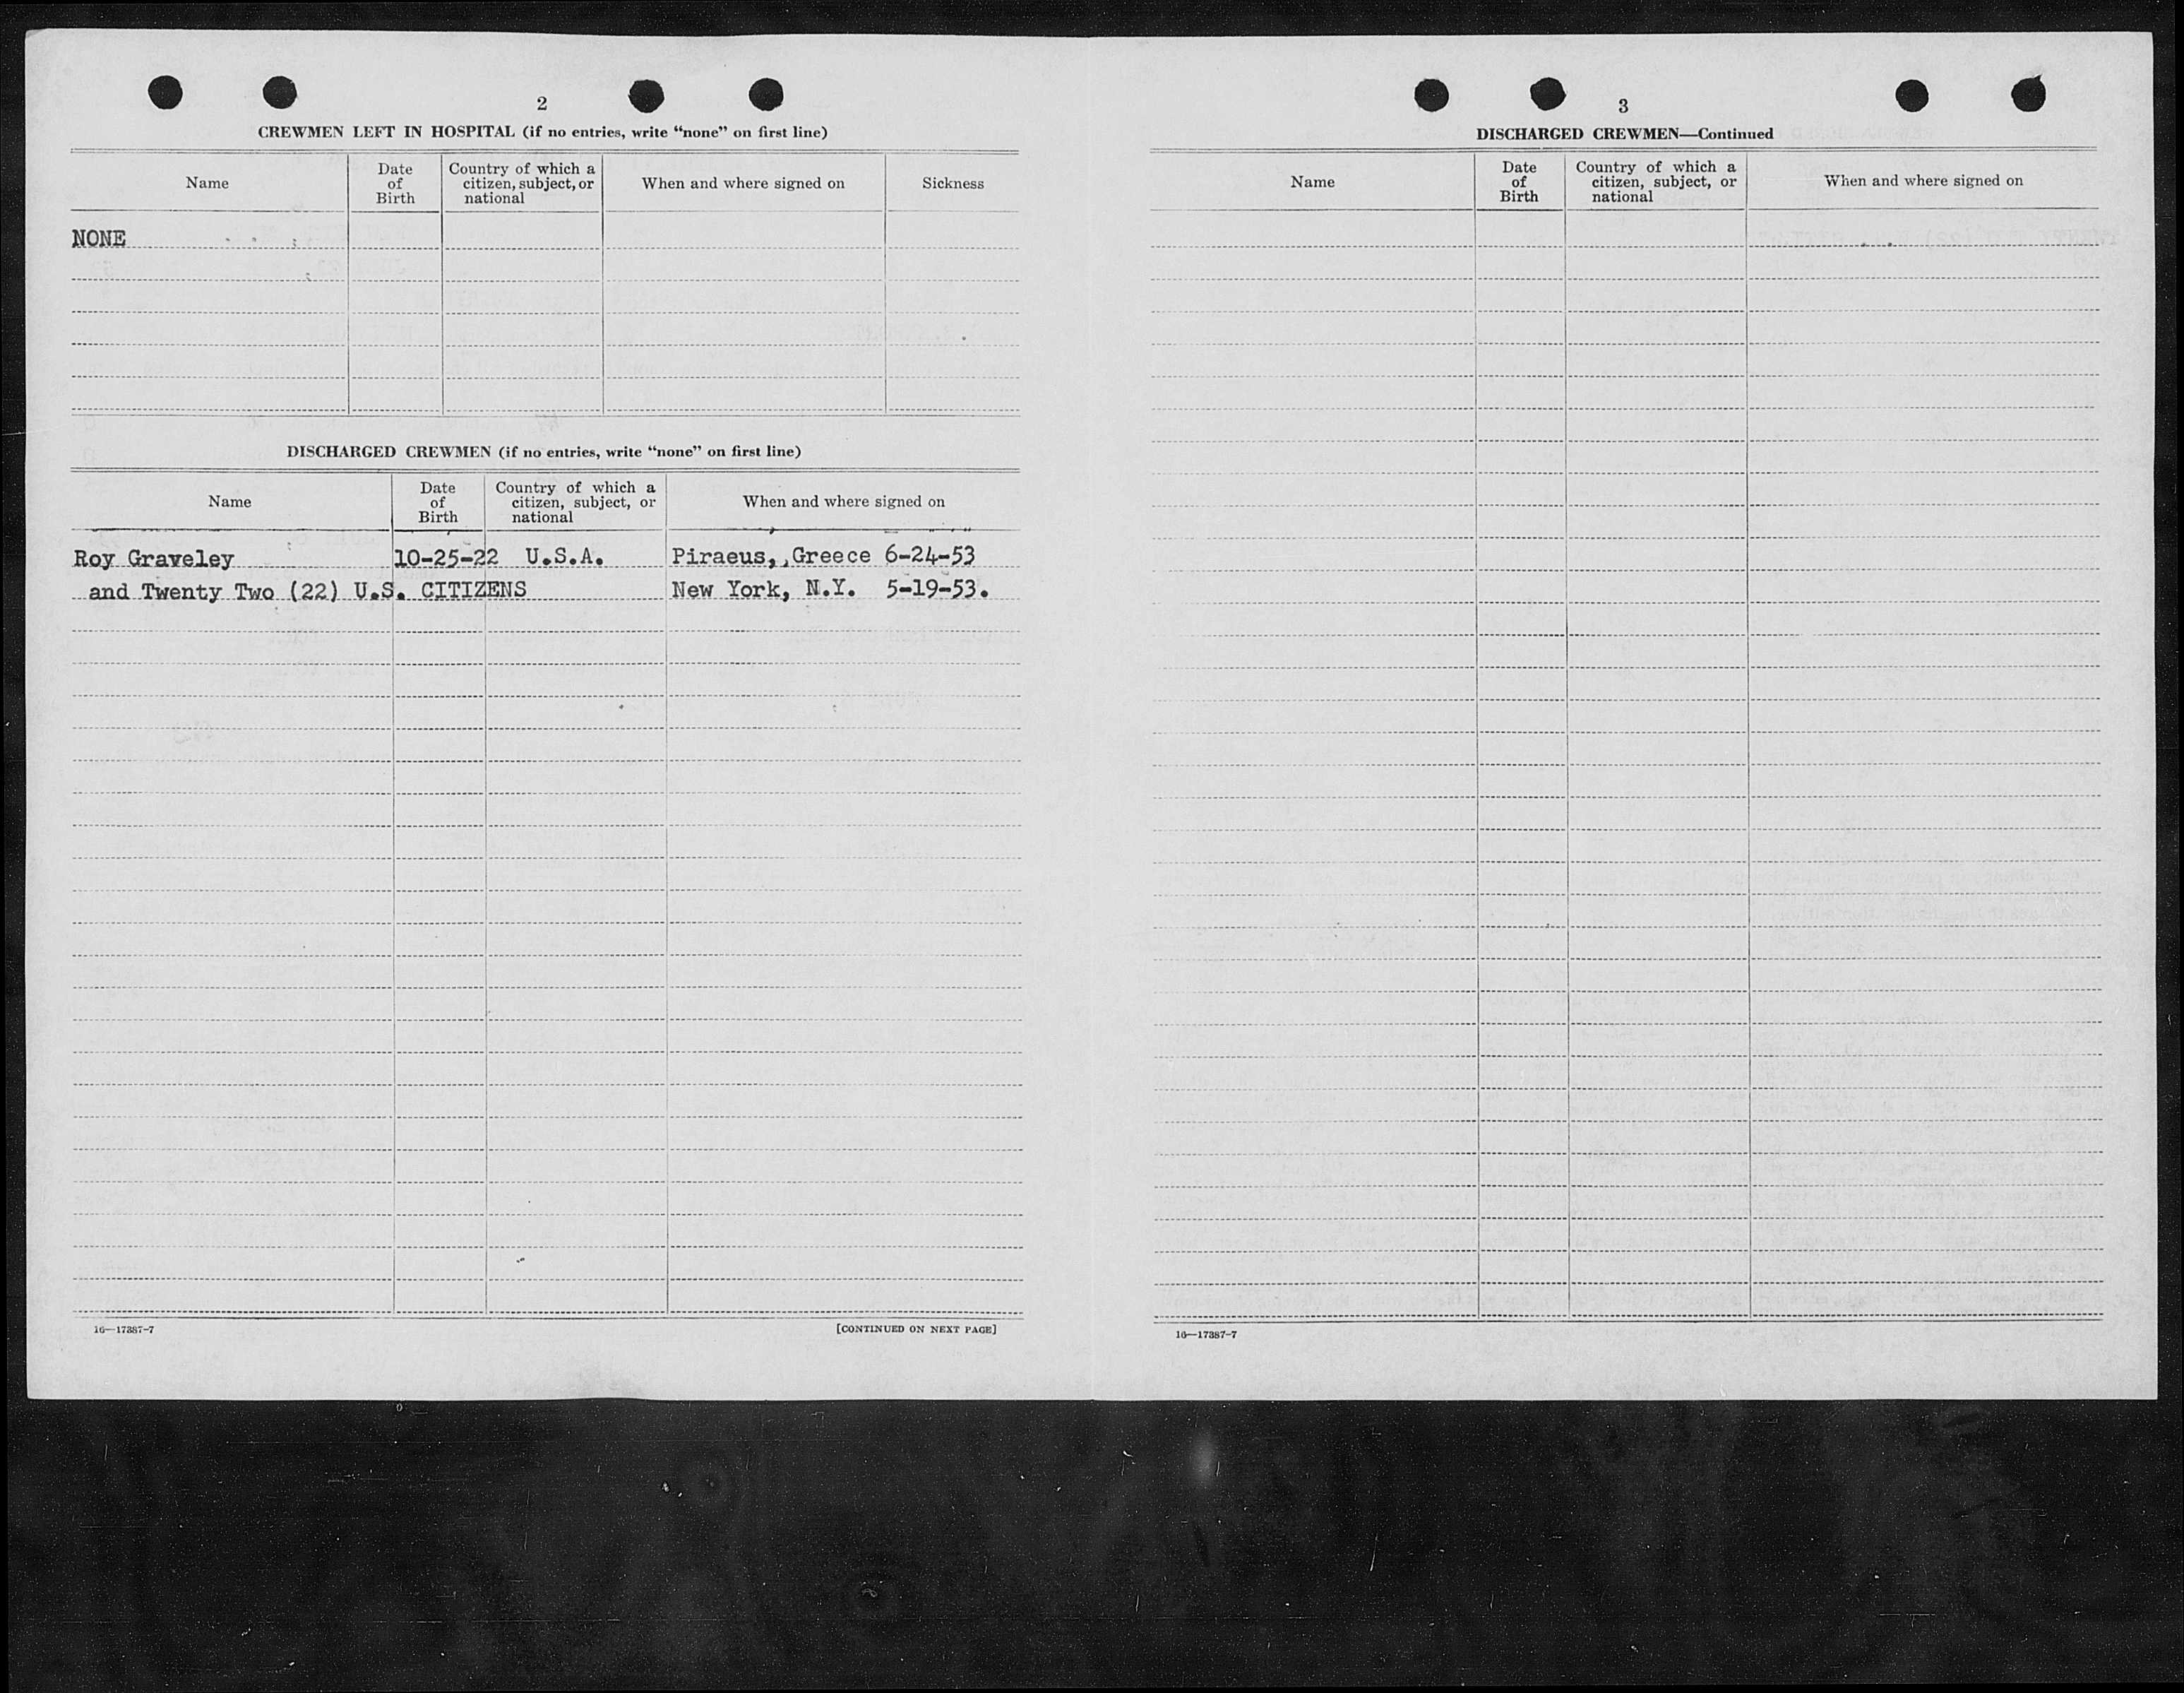 2
CREWMEN LEFT IN HOSPITAL (if no entries, write “none” on first line)
Name
Date of Birth
Country of which a citizen, subject, or national
When and where signed on
Sickness
NONE
DISCHARGED CREWMEN (if no entries, write “none” on first line)
Name
Date of Birth
Country of which a citizen, subject, or national
When and where signed on
Roy Graveley 10-25-22 U.S.A. Piraeus, Greece 6-24-53
and Twenty Two (22) U.S. CITIZENS New York, N.Y. 5-19-53.
16—17387-7
[CONTINUED ON NEXT PAGE]
3
DISCHARGED CREWMEN—Continued
Name
Date of Birth
Country of which a citizen, subject, or national
When and where signed on
16—17387-7